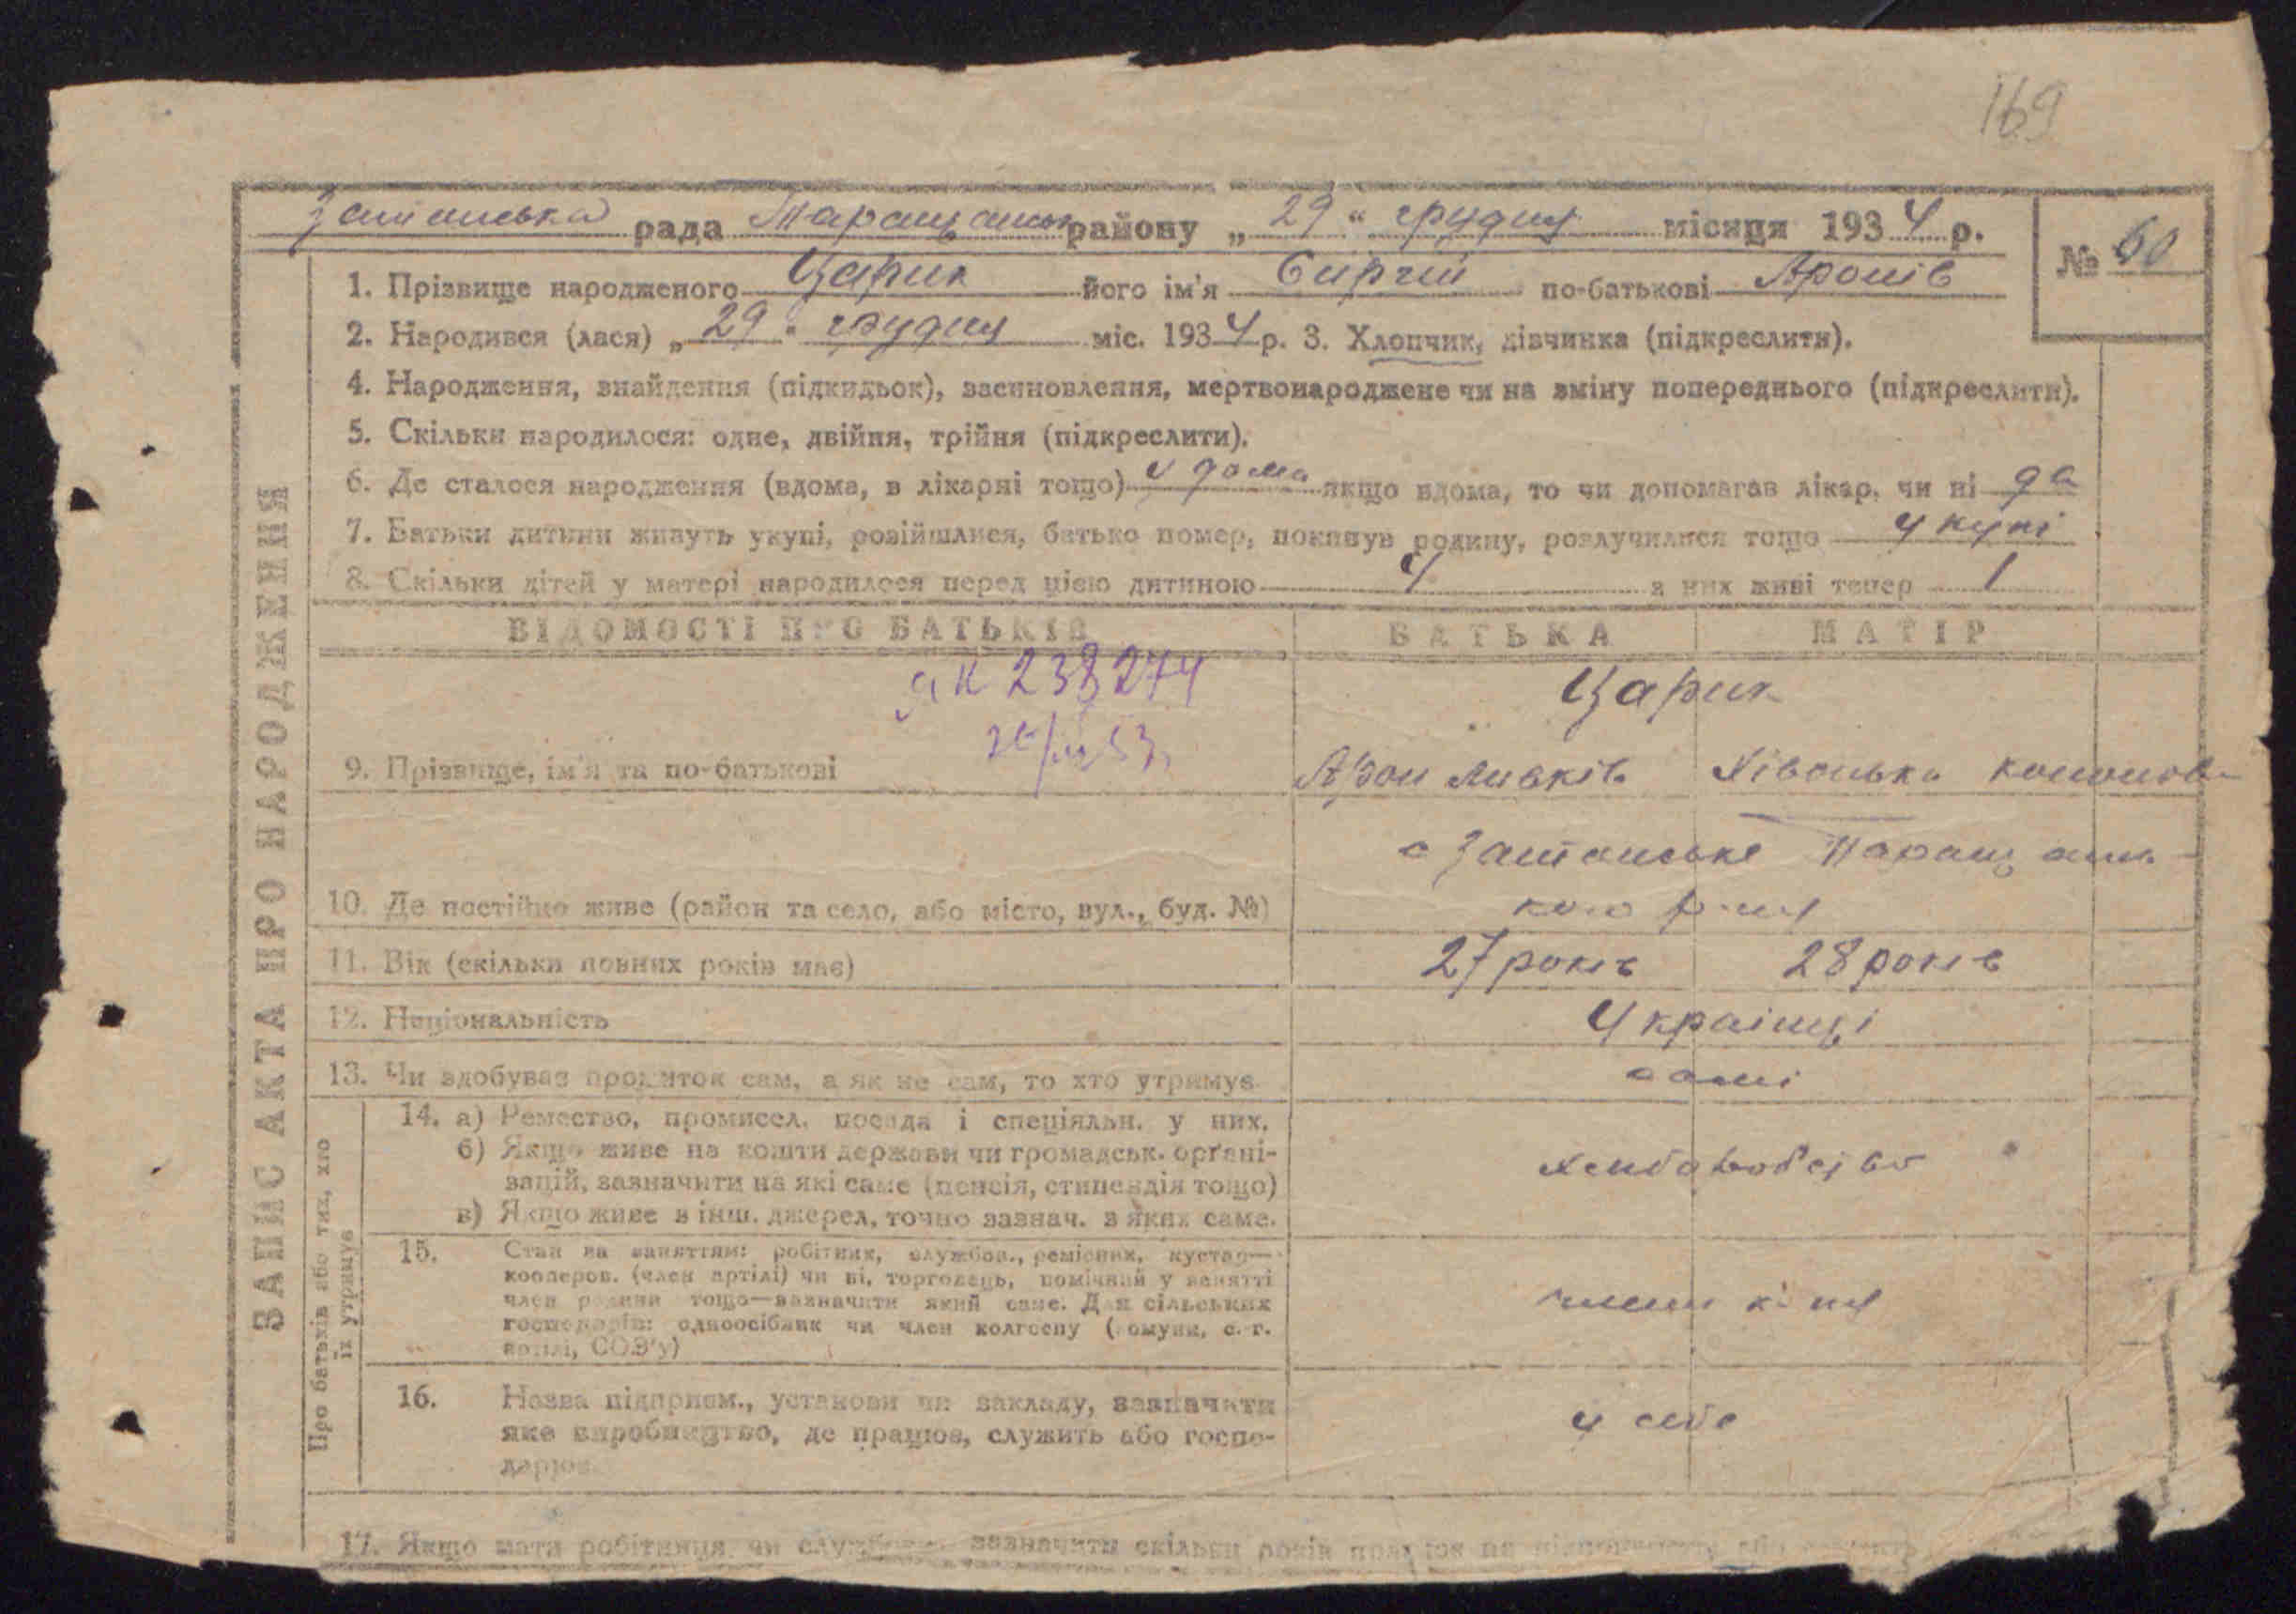 169
рада Таращанськ району „ 29 “ грудня місяця 193 4 р.
№ 60
1. Прізвище народженого Царик його ім'я Сиргій по-батькові Аронів
2. Народився (лася) „ 29 “ грудня міс. 193 4 р. 3. Хлопчик, дівчинка (підкреслити).
4. Народження, знайдення (підкидьок), засиновлення, мертвонароджене чи на зміну попереднього (підкреслити).
5. Скільки народилося: одне, двійня, трійня (підкреслити).
6. Де сталося народження (вдома, в лікарні тощо) у дома якщо вдома, то чи допомагав лікар, чи ні да
7. Батьки дитини живуть укупі, розійшлися, батько помер, покинув родину, розлучилися тощо укупі
8. Скільки дітей у матері народилося перед цією дитиною 4 з них живі тепер 1
ЗАПИС АКТА ПРО НАРОДЖЕННЯ
ВІДОМОСТІ ПРО БАТЬКІВ БАТЬКА МАТІР
ЯК 238274
Царик
9. Прізвище, ім'я та по-батькові Арон Хівонька
с
10. Де постійно живе (район та село, або місто, вул., буд. №)
11. Вік (скільки повних років має) 27 років 28 років
12. Національність Українці
13. Чи здобуває прожиток сам, а як не сам, то хто утримує самі
Про батьків або тих, хто їх утримує
14. а) Ремество, промисел, посада і спеціяльн. у них.
б) Якщо живе на кошти держави чи громадськ. орґані-
зацій, зазначити на які саме (пенсія, стипендія тощо)
в) Якщо живе з інш. джерел, точно зазнач. з яких саме.
15. Стан на заняттям: робітник, службов., ремісник, кустар—
кооперов. (член артілі) чи ні, торговець, помічний у занятті
член родини тощо—зазначити який саме. Для сільських
господарів: одноосібник чи член колгоспу (комуни, с.-г.
артілі, СОЗ'у)
16. Назва підприєм., установи чи закладу, зазначити
яке виробництво, де працює, служить або госпо-
дарює
у себе
17. Якщо мати робітниця чи службовець зазначити скільки років працює на